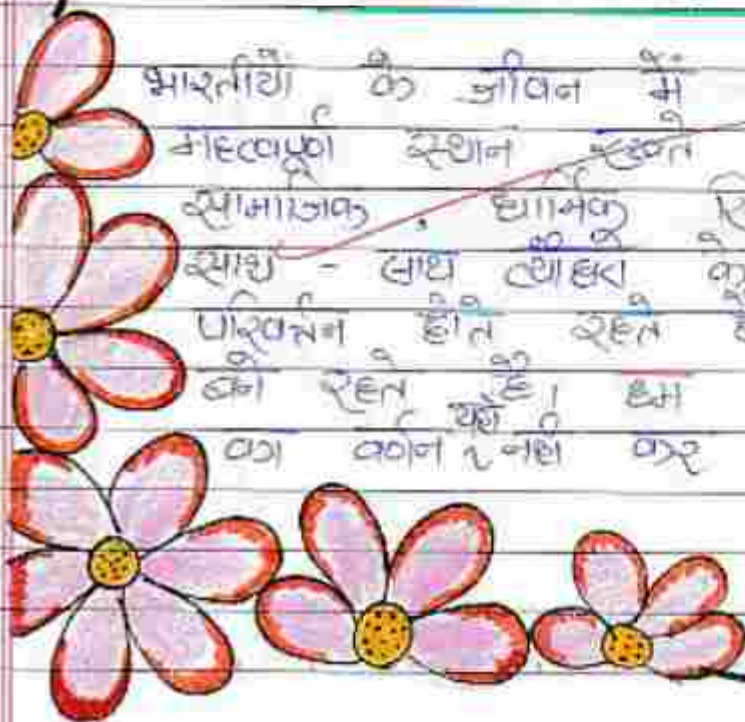 भारतीयों के जीवन में
महत्वपूर्ण स्थान रखते
सामाजिक, धार्मिक
साथ - साथ त्यौहार के
परिवर्तन होते रहते
बने रहते है। हम
का वर्णन यहाँ नही कर